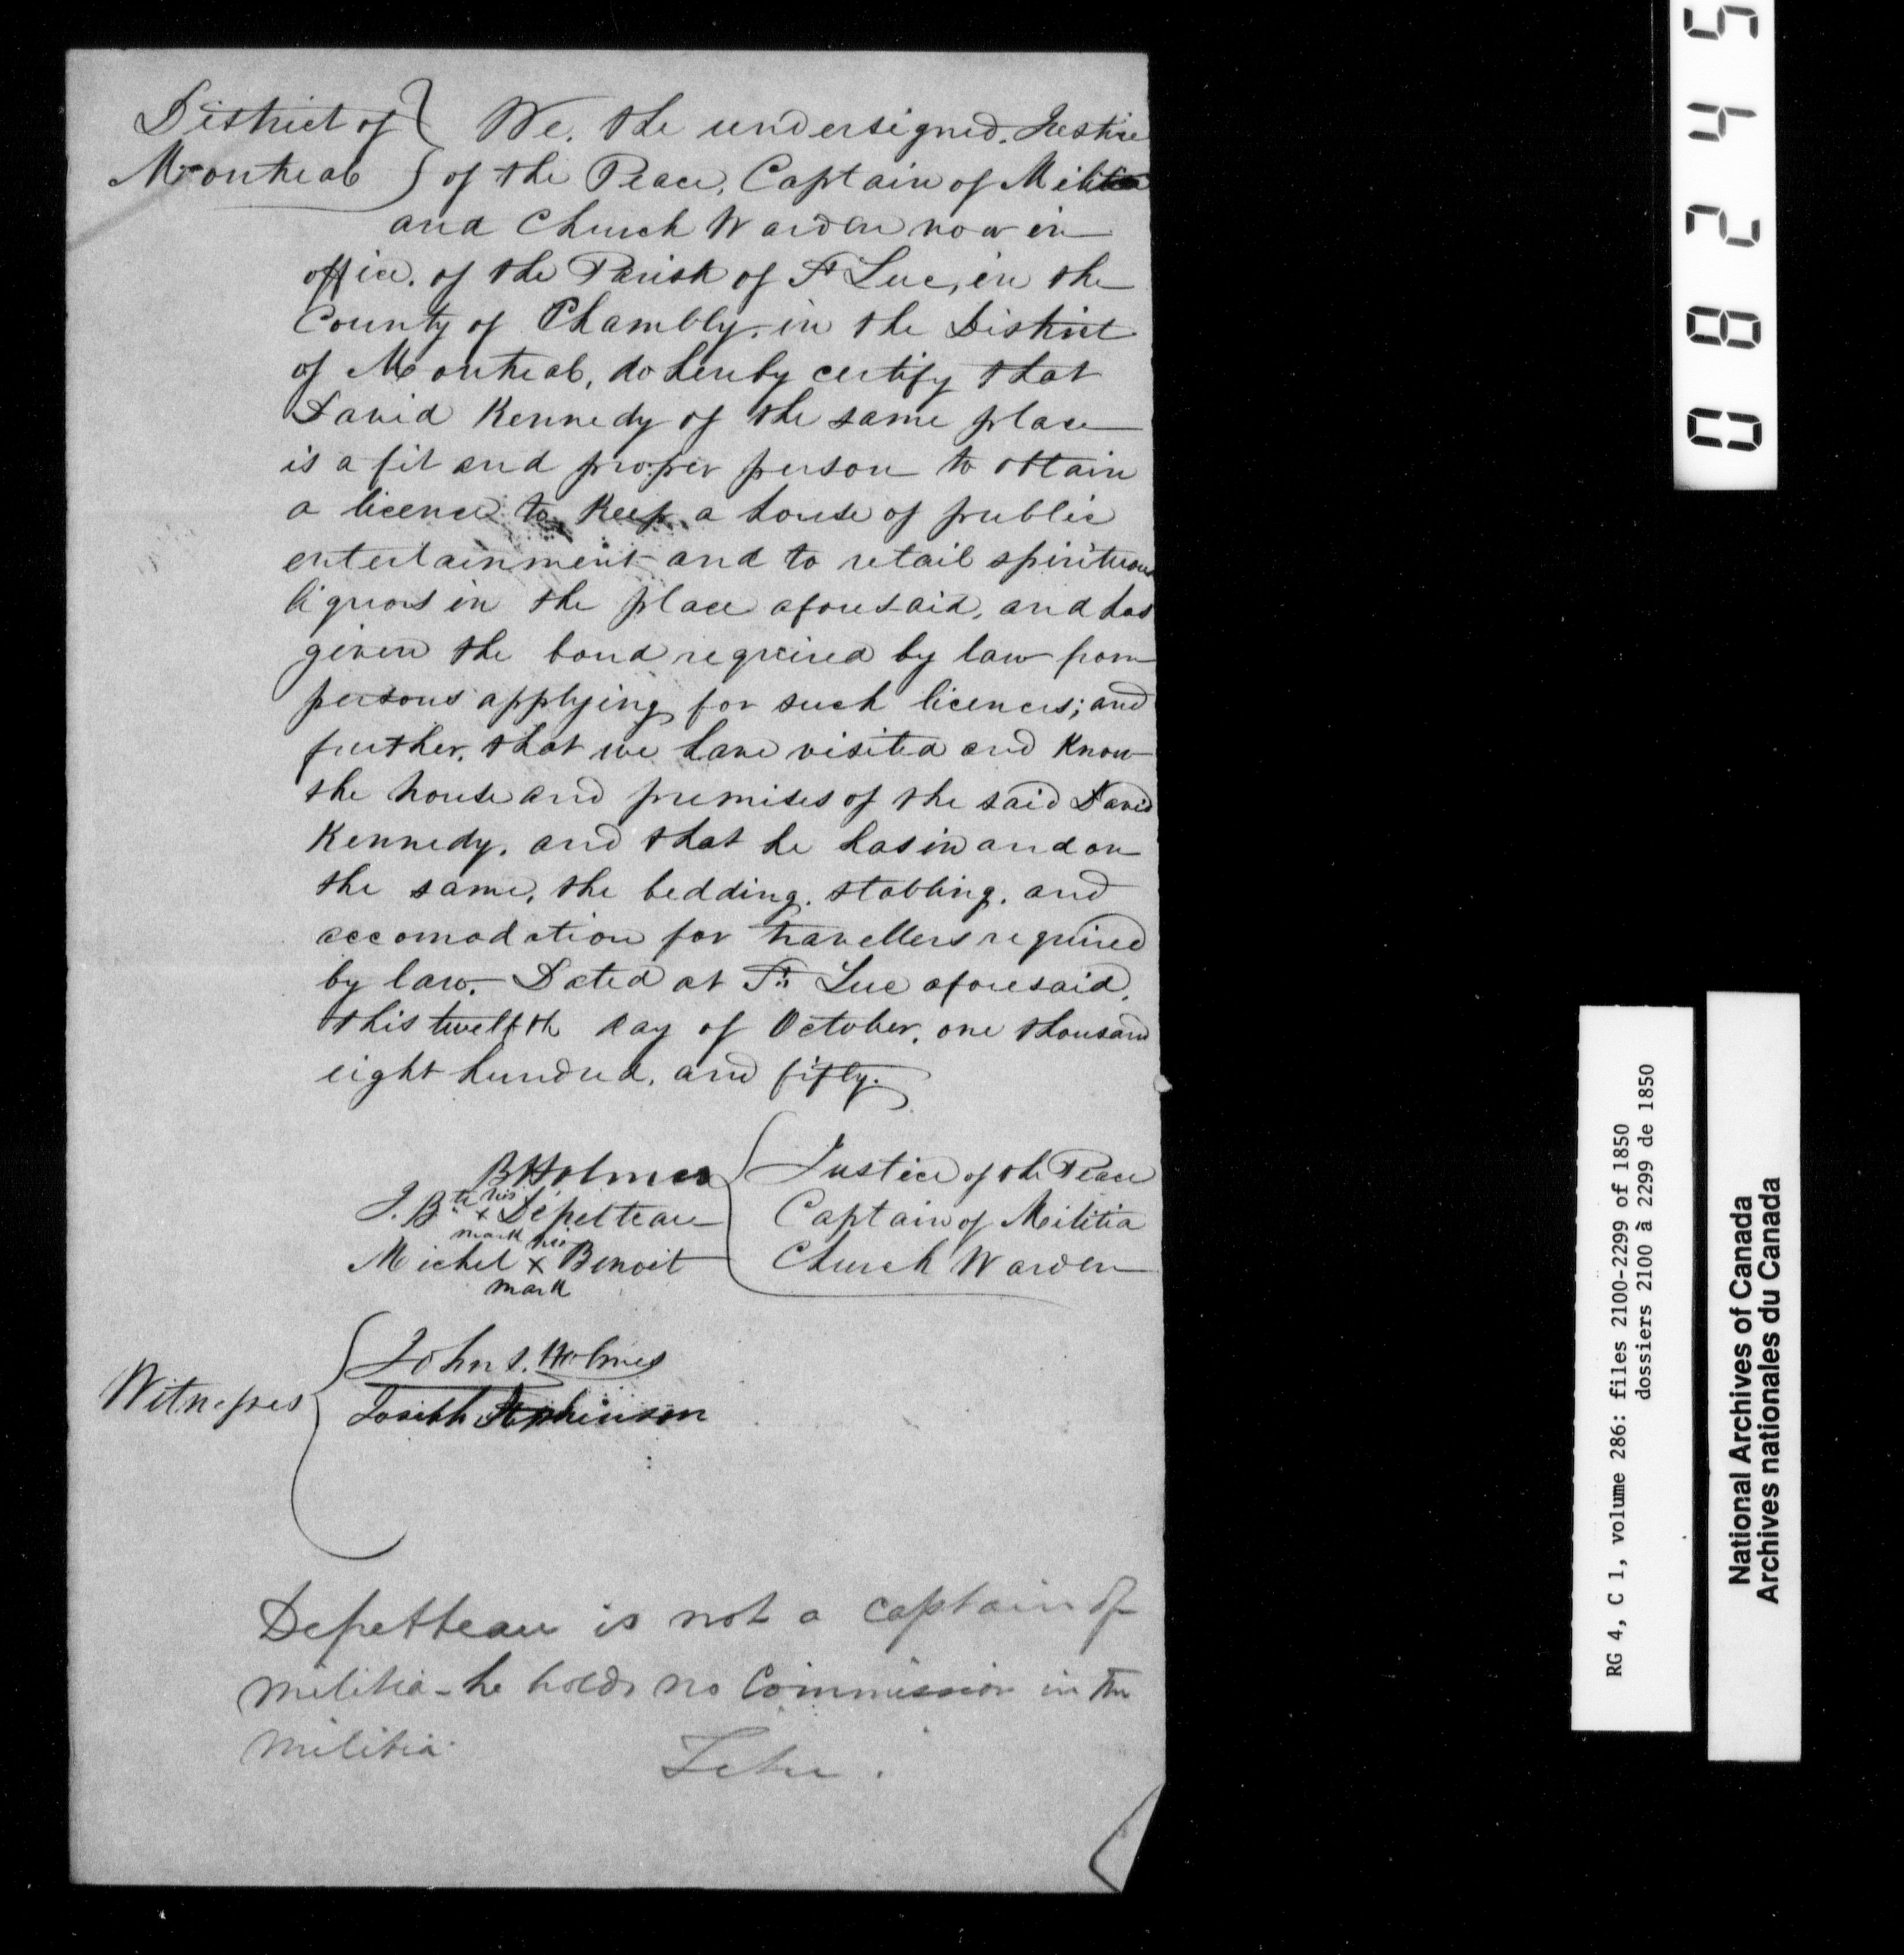 District of } We, the undersigned, Justice
Montreal } of the Peace, Captain of Militia
and Church Warden now in
office, of the Parish of St Luc, in the
County of Chambly, in the District
of Montreal, do hereby certify that
David Kennedy of the same place
is a fit and proper person to obtain
a licence to keep a house of public
entertainment and to retail spirituous
liquors in the place aforesaid, and has
given the bond required by law from
persons applying for such licences; and
further, that we have visited and know
the house and premises of the said David
Kennedy, and that he has in and on
the same, the bedding, stabling, and
accomodation for travellers required
by law. Dated at St. Luc aforesaid,
this twelfth day of October, one thousand
eight hundred, and fifty.
B Holmes { Justice of the Peace
J. Bte his x mark Dépelteau { Captain of Militia
Michel his x mark Benoit { Church Warden
Witnesses { John S. Holmes
Joseph
Depelteau is not a captain of
Militia - he holds no Commission in the
Militia.
08245
RG 4, C 1, volume 286: files 2100-2299 of 1850
dossiers 2100 à 2299 de 1850
National Archives of Canada
Archives nationales du Canada